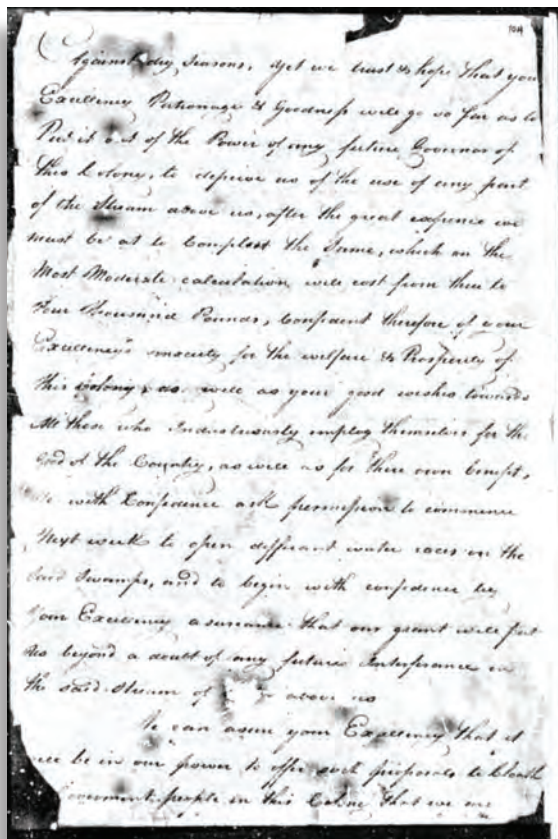 104
Against dry Seasons, yet we trust & hope that you
Excellency Patronage & Goodness will go so far as to
Put it out of the Power of any future Governor of
this Colony, to deprive us of the use of any part
of the Stream above us, after the great expence we
must be at to Compleat the Same, which on the
Most Moderate calculation will cost from three to
Four Thousand Pounds, Confident therefore of your
Excellency's anxiety for the welfare & Prosperity of
this Colony as well as your good wishes towards
All those who Industriously employ themselves for the
Good of the Country, as well as for there own benefit,
We with Confidence ask permission to commence
Next week to open different water races on the
Said Swamps, and to begin with confidence by
Your Excellency assurance that our grant will put
us beyond a doubt of any future Interferance in
the said Stream of above us
We can assure your Excellency that it
will be in our power to offer such proposals to Cloath
Government people in this Colony that we are